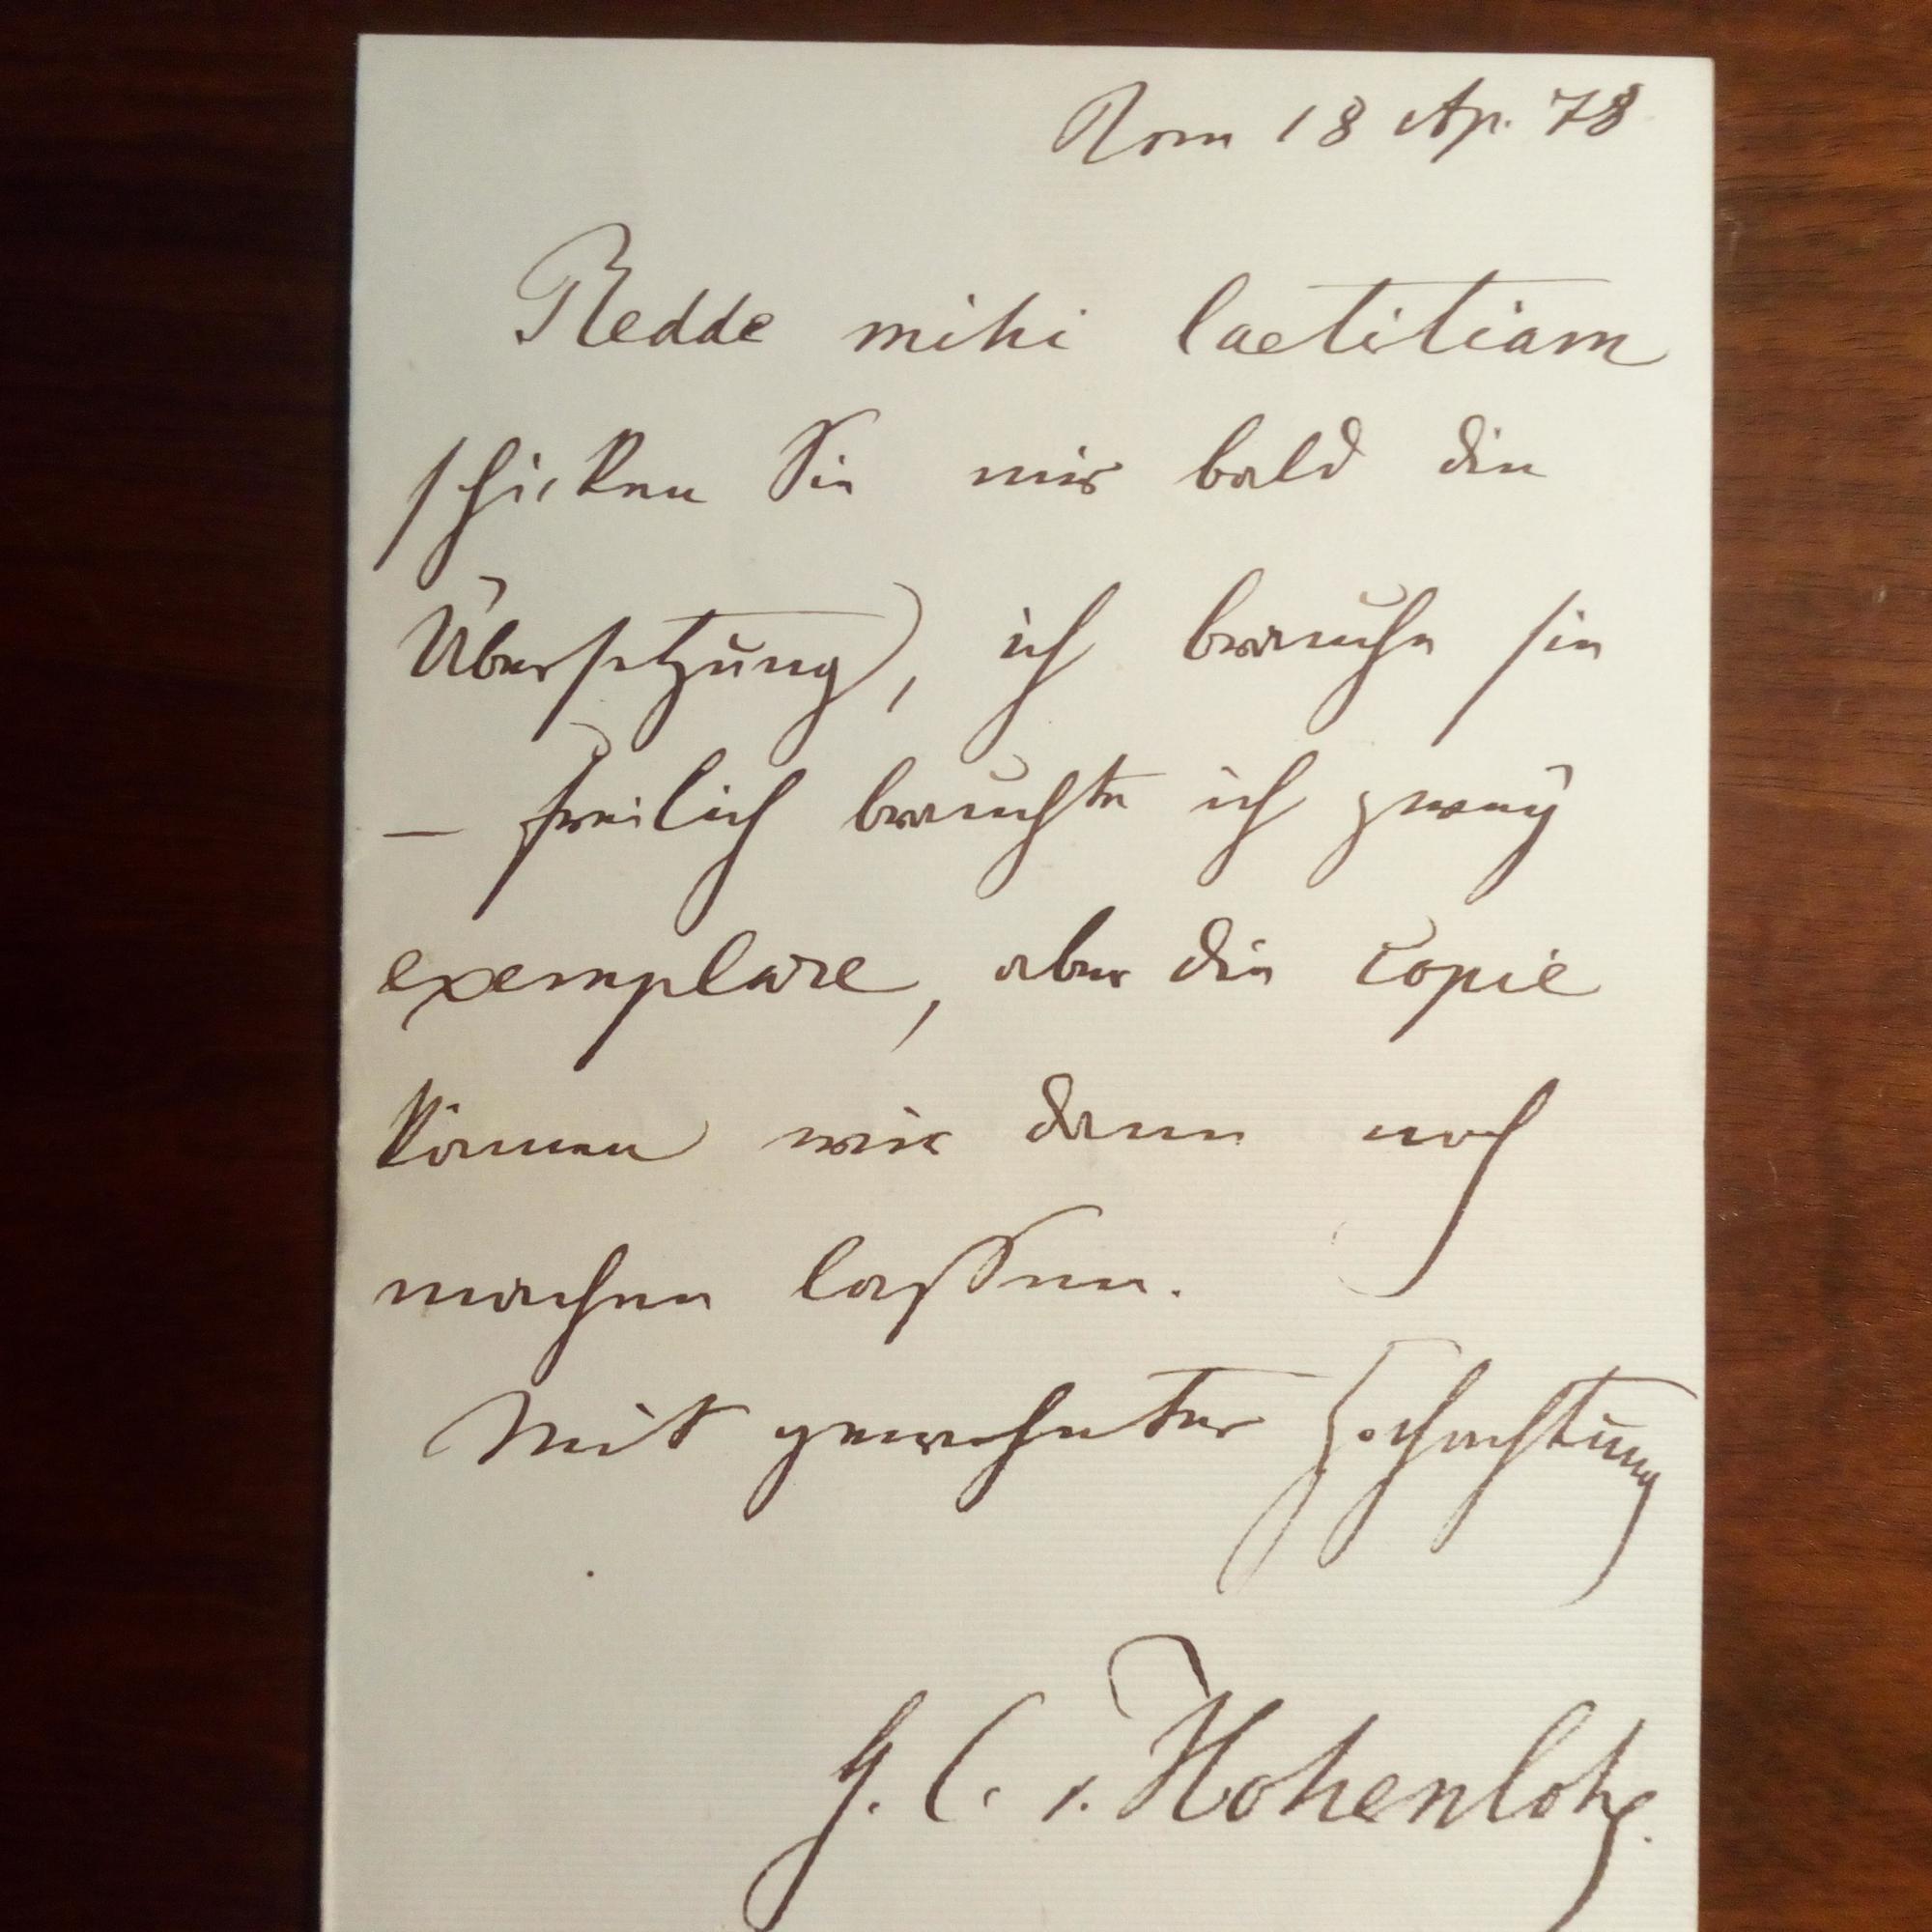 Rom 18 Ap. 78
Redde mihi laetitiam
schicken Sie mir bald die
Übersetzung, ich brauche sie
— freilich brauchte ich zwey
exemplare, aber die Copie
können wir dann noch
machen lassen.
Mit gewohnter Hochachtung
G. C. v. Hohenlohe.